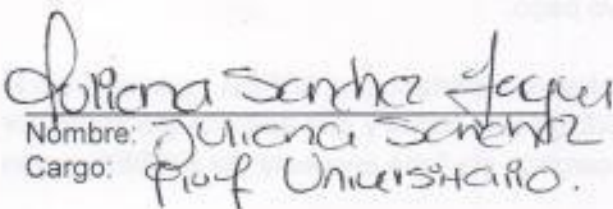 Juliana Sanchez
Nombre: Juliana Sanchez
Cargo: Prof Universitario.